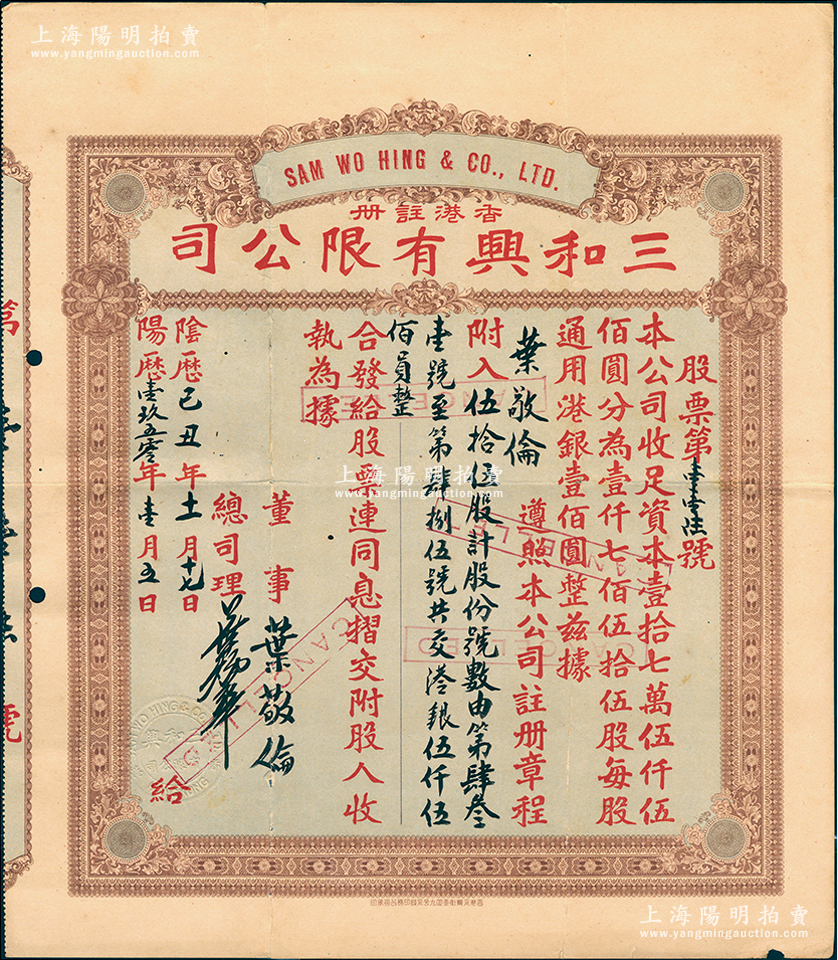 上海陽明拍賣
www.yangmingauction.com
SAM WO HING & CO., LTD.
香港註册
三和興有限公司
股票第壹壹陸號
本公司收足資本壹拾七萬伍仟伍
佰圓分為壹仟七佰伍拾伍股每股
通用港銀壹佰圓整兹據
葉敬倫 遵照本公司註册章程
附入伍拾伍股計股份號數由第肆叁
壹號至第肆捌伍號共交港銀伍仟伍
佰員整
合發給股票連同息摺交附股人收
執為據
董事 葉敬倫
總司理
陰歷己丑年十一月十七日
陽歷壹玖五零年壹月五日
給
CANCELLED
CANCELLED
CANCELLED
CANCELLED
上海陽明拍賣
www.yangmingauction.com
上海陽明拍賣
www.yangmingauction.com
第
號